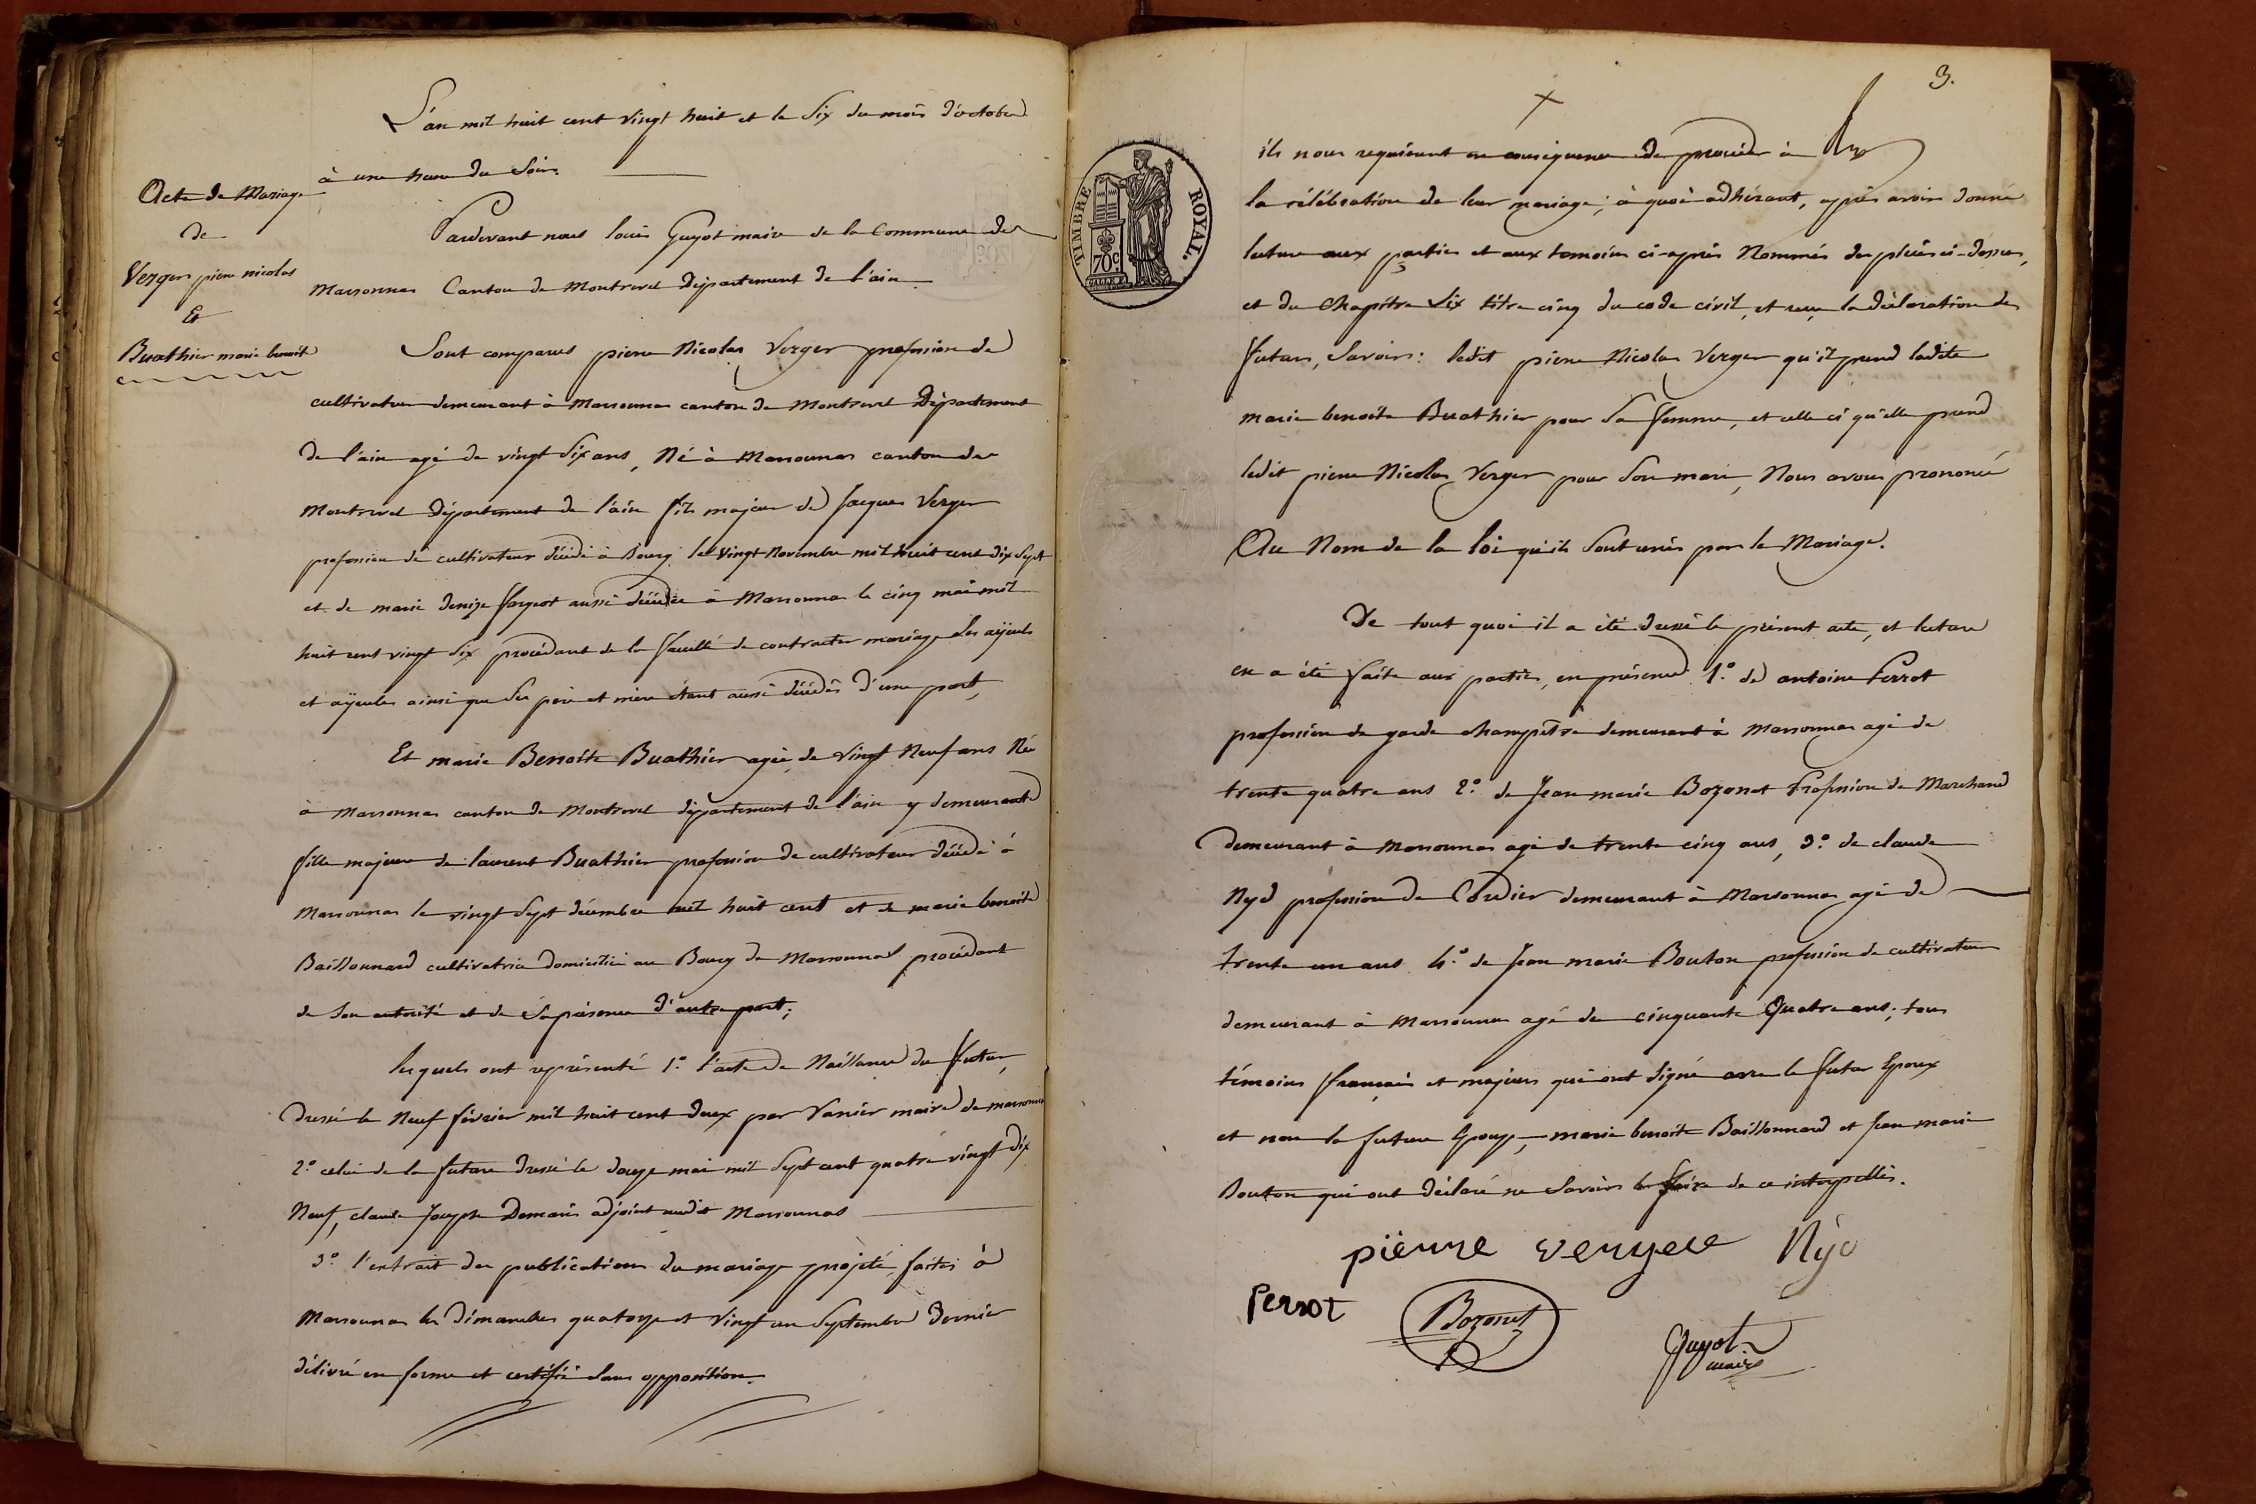 L'an mil huit cent vingt huit et le Six du mois d'octobre
à une heure du Soir.
Acte de Mariage
de
Verger piere nicolas
Et
Buathier marie benoite
Pardevant nous louis Guyot maire de la Commune de
marsonnas Canton de montrevel Département de l'ain
Sont comparus piere Nicolas Verger profession de
cultivateur demeurant à Marsonnas canton de Montrevel Département
de l'ain agé de vingt Six ans, Né à Marsonnas canton de
Montrevel département de l'ain fils majeur de Jacques Verger
profession de cultivateur décédé à Bourg le vingt Novembre mil huit cent dix Sept
et de marie denize fargeot aussi décédée à Marsonnas le cinq mai mil
huit cent vingt Six procédant de la faculté de contracter mariage Ses ayeuls
et ayeules ainsi que Ses pere et mere étant aussi décédés d'une part,
Et marie Benoite Buathier agée de vingt Neuf ans Née
à marsonnas canton de Montrevel département de l'ain y demeurante
fille majeure de laurent Buathier profession de cultivateur décédé à
Marsonnas le vingt Sept décembre mil huit cent et de marie benoite
Baissonnard cultivatrice domiciliée au Bourg de Marsonnas procédant
de Son autorité et de Sa présence d'autre part;
lesquels ont représenté 1.° l'acte de Naissance du futur,
Dressé le Neuf février mil huit cent deux par Vanier maire de marsonnas
2.° celui de la future dressé le douze mai mil Sept cent quatre vingt dix
Neuf, claude Joseph Demaris adjoint audit Marsonnas
3.° l'extrait des publications du mariage projeté, faites à
Marsonnas les Dimanches quatorze et vingt un Septembre Dernier
délivré en forme et certifié Sans opposition.
3.
TIMBRE ROYAL.
70c.
ils nous requierent en conséquence de procéder à
la célébration de leur mariage; à quoi adhérant, après avoir donné
lecture aux parties et aux temoins ci-après Nommés des pièces ci-dessus,
et du Chapitre Six titre cinq du code civil, et reçu la déclaration des
futurs, Savoir: ledit piere Nicolas Verger qu'il prend ladite
marie benoite Buathier pour Sa femme, et celle ci qu'elle prend
ledit piere Nicolas Verger pour Son mari, Nous avons prononcé
Au Nom de la loi qu'ils Sont unis par le Mariage.
De tout quoi il a été dressé le présent acte, et lecture
en a été faite aux parties, en présence 1.° de antoine Perrot
profession de garde champêtre demeurant à Marsonnas agé de
trente quatre ans 2.° de Jean marie Bozonet Profession de Marchand
demeurant à Marsonnas agé de trente cinq ans, 3.° de claude
Nyd profession de Cordier demeurant à Marsonnas agé de
trente un ans 4.° de Jean marie Bouton profession de cultivateur
demeurant à Marsonnas agé de cinquante Quatre ans; tous
témoins français et majeurs qui ont Signé avec le futur Epoux
et non la future Epouse, marie benoite Baissonnard et Jean marie
Bouton qui ont déclaré ne Savoir le faire de ce interpellés.
pierre verger Nyd
Perrot Bozonet
Guyot
maire